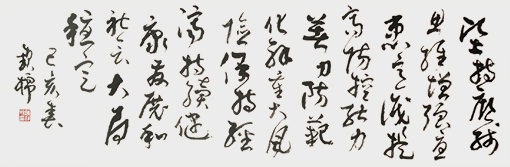 坚持底线
思维增强忧
患意识提
高防控能力
着力防范
化解重大风
险保持经
济持续健
康发展和
社会大局
稳定
己亥春